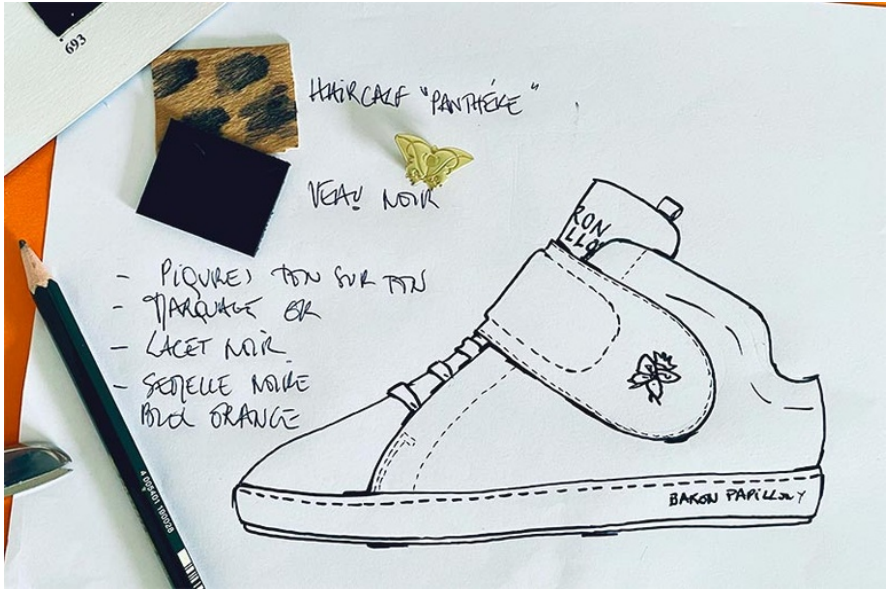 693
HAIRCALF "PANTHÉRE"
VEAU NOIR
- PIQURES TON SUR TON
- MARQUAGE OR
- LACET NOIR
- SEMELLE NOIRE
ORANGE
RON
LLO
BARON PAPILLOM
4 005401 190028